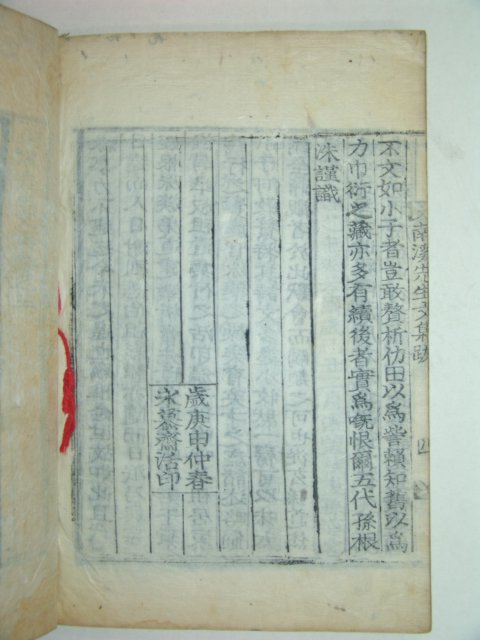 南溪先生文集跋 四
不文如小子者豈敢贅析仿田以爲訾賴知舊以爲
力巾衍之藏亦多有續後者實爲嘅恨爾五代孫根
洙謹識
歲庚申仲春
永慕齋活印